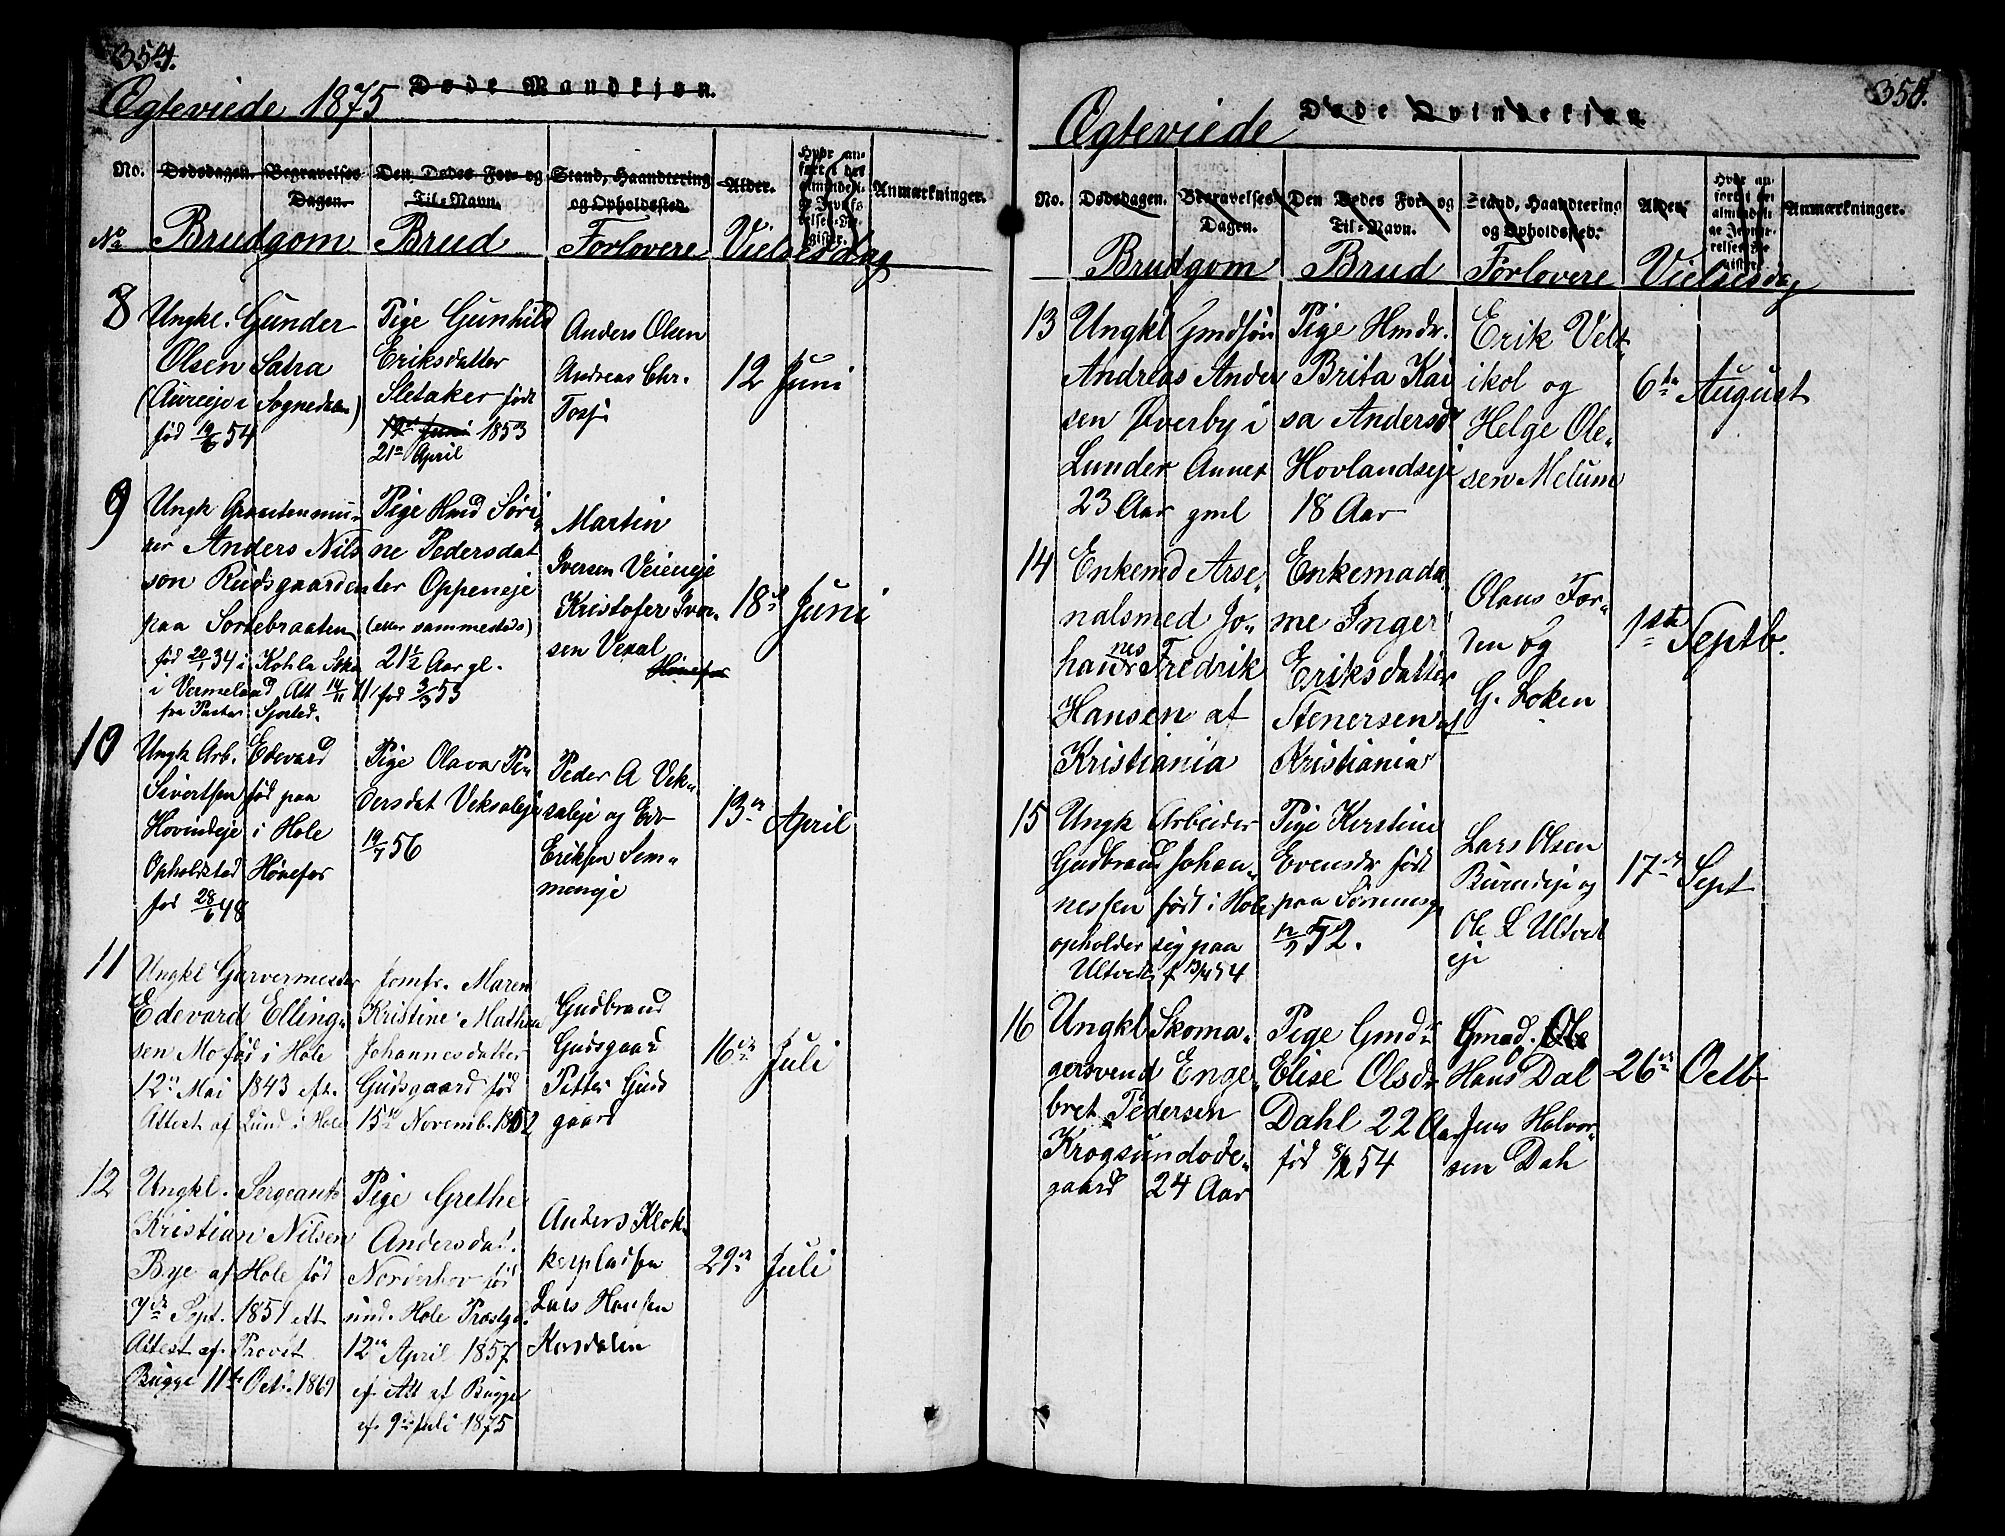 354.
Ægteviede 1875
Døde Mandkjøn.
No. Dødsdagen. Begravelses Dagen. Den Dødes For- og Til-Navn. Stand, Haandtering og Opholdssted. Alder. Hvor anført i det almindelige Jevnførelses-Register. Anmærkninger.
No Brudgom Brud Forlovere Vielsesdag
8
Ungkl. Gunder
Olsen Satra
(Aureeje i Sognedalen)
fød 19/6 54
Pige Gunhild
Eriksdatter
Sletaker født
19de Juni 1853
21de April
Anders Olsen
Andreas Chr.
12 Juni
9
Ungk
Anders Nils
son Rudsgaarden
paa Sørkebraaten
fød 20/1 34 i
i Vermeland Att 14/11
fra Pastor
Pige Hmd Søri
ne Pedersdat
ter Oppeneje
(etter sammesteds)
21½ Aar gl.
fød 3/3 53
Martin
Iversen Veieneje
Kristofer Iver
sen Vexal
Hønefos
18de Juni
10
Ungk Arb. Edevard
Sivertsen fød paa
Hovindeje i Hole
Opholdsted Hønefos
fød 28/6 48
Pige Olava Pe
dersdat Veksaleje
19/7 56
Peder A Vek
saleje og
Eriksen Sem
meneje
13de April
11
Ungkl Garvermester
Edevard Elling
sen Mo fød i Hole
12te Mai 1843 eft.
Attest af Lund i Hole
Jomfr. Maren
Kristine Mathea
Johannesdatter
Gudsgaard fød
15de Novemb. 1852
Gudbrand
Gudsgaard
Petter Guds
gaard
16de Juli
12
Ungkl. Sergeant
Kristian Nilsen
Bye af Hole fød
7de Sept. 1851 eft
Attest af Provst
Bugge 11te Oct. 1869
Pige Grethe
Andersdat.
Norderhov fød
und. Hole Præstgj.
12te April 1857
ef. Att af Bugge
af 9de Juli 1875
Anders Klok
kerpladsen
Lars Hansen
Korsdalen
29de Juli
355.
Ægteviede
Døde Qvindekjøn.
No. Dødsdagen. Begravelses Dagen. Den Dødes For- og Til-Navn. Stand, Haandtering og Opholdssted. Alder. Hvor anført i det almindelige Jevnførelses-Register. Anmærkninger.
Brudgom Brud Forlovere Vielsesdag
13
Ungkl Gmdsøn
Andreas Ander
sen Øverby i
Lunder Annex
23 Aar gml
Pige Hmdr.
Brita Kai
sa Andersd
Hovlandseje
18 Aar
Erik Velt
ikol og
Helge Ole
sen Melum
6te August
14
Enkemd Arse
nalsmed Jo
hannes Fredrik
Hansen af
Kristiania
Enkemada
me Inger
Eriksdatter
Stenersen af
Kristiania
Olaus For
den og
G. Loken
1ste Septb.
15
Ungk Arbeider
Gudbrand Johan
nessen født i Hole
opholder sig paa
Ultvedt f 13/4 54
Pige Kirstine
Evensdr født
paa
12/2 52.
Lars Olsen
Bureneje og
Ole L Ultvet
eje
17de Sept
16
Ungkl Skoma
gersvend Enge
bret Pedersen
Krogsundøde
gaard 24 Aar
Pige Gmdr
Elise Olsdr
Dahl 22 Aar
fød 54
Gmad. Ole
Hans Dal
Jens Halvor
sen Dah
26de Octb